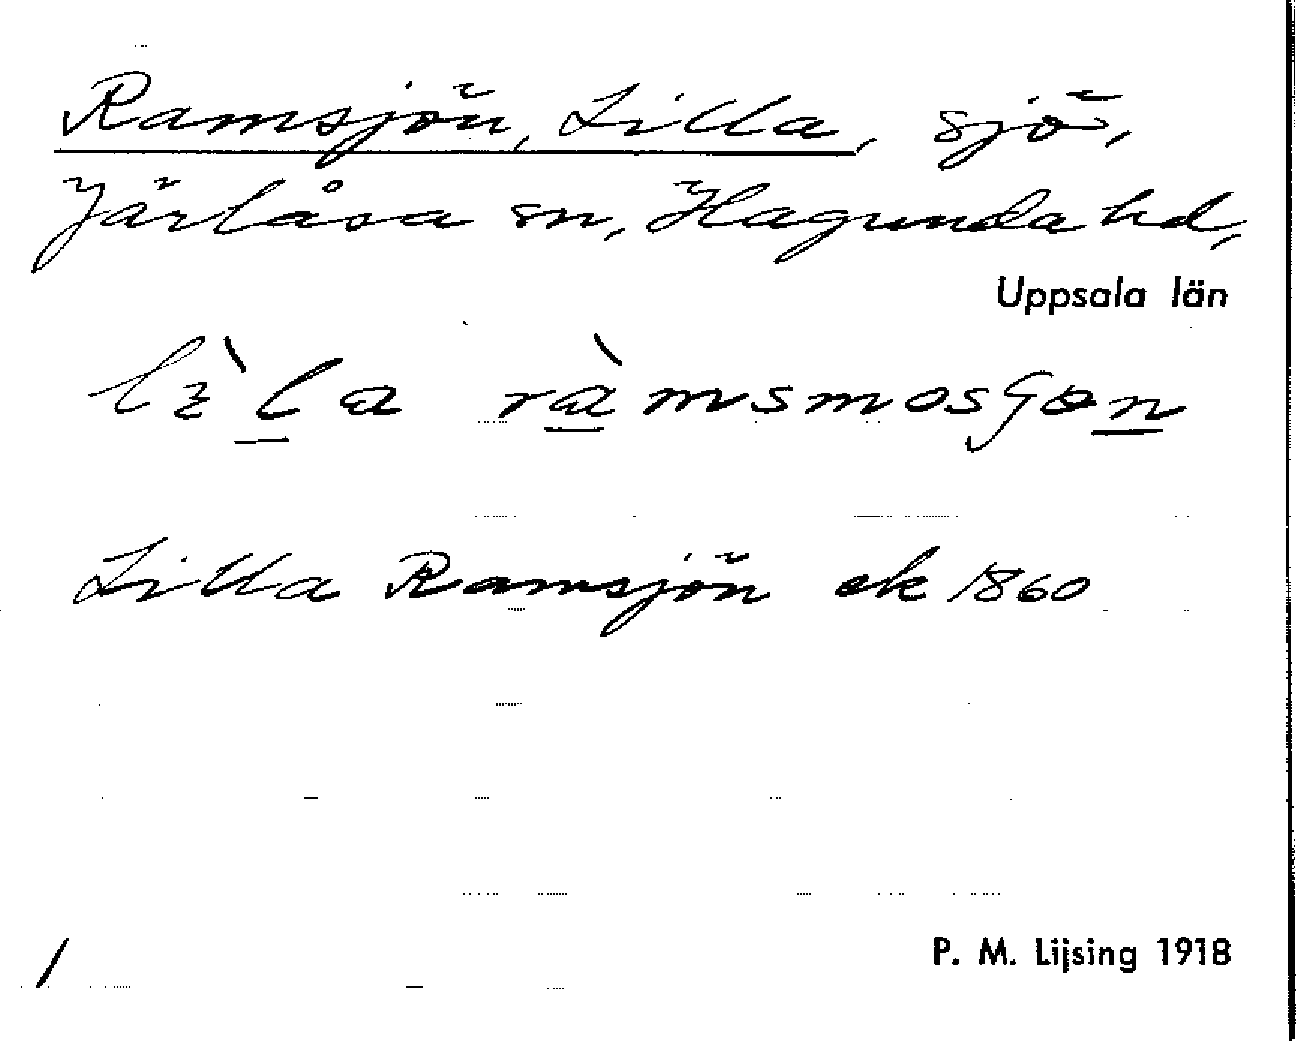 Ramsjön, Lilla, sjö,
Järlåsa sn, Hagunda hd,
Uppsala län
Lilla Ramsjön ek 1860
P. M. Lijsing 1918